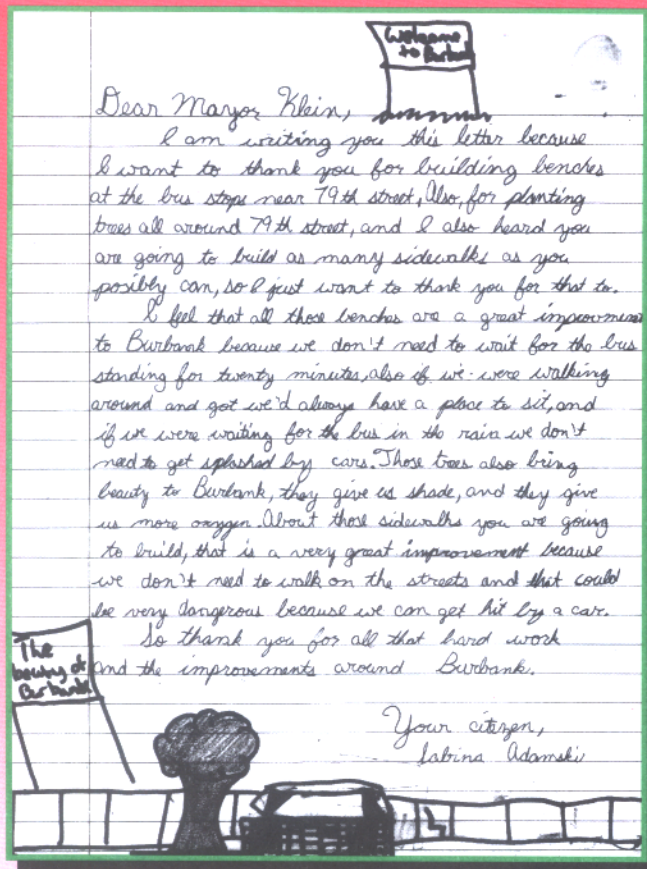 Welcome
to Burbank
Dear Mayor Klein,
I am writing you this letter because
I want to thank you for building benches
at the bus stops near 79th street, Also, for planting
trees all around 79th street, and I also heard you
are going to build as many sidewalks as you
posibly can, so I just want to thank you for that to.
I feel that all those benches are a great improvment
to Burbank because we don't need to wait for the bus
standing for twenty minutes, also if we were walking
around and got we'd always have a place to sit, and
if we were waiting for the bus in the rain we don't
need to get splashed by cars. Those trees also bring
beauty to Burbank, they give us shade, and they give
us more oxygen. About those sidewalks you are going
to build, that is a very great improvement because
we don't need to walk on the streets and that could
be very dangerous because we can get hit by a car.
So thank you for all that hard work
and the improvements around Burbank.
The
of
Burbank
Your citizen,
Sabina Adamski